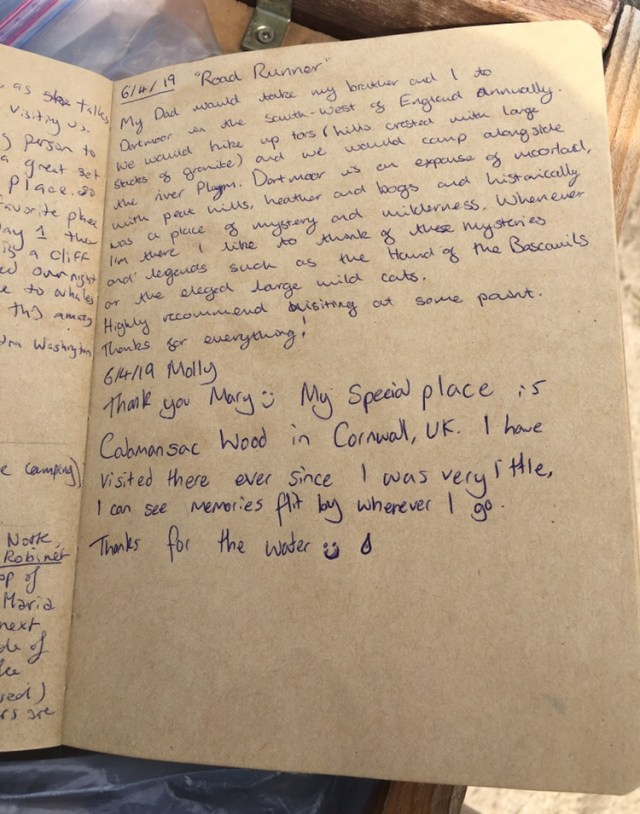 as she talks
visiting us.
person to
a great set
place. so
favorite place
day 1 the
is a cliff
ed overnight
e to whales
this among
om Washington
e camping)
North,
Robinet
op of
Maria
next
de of
sed)
rs are
6/4/19 "Road Runner"
My Dad would take my brother and I to
Dartmoor in the South-West of England annually.
We would hike up tors (hills crested with large
stacks of granite) and we would camp alongside
the river Plym. Dartmoor is an expanse of moorland,
with peat hills, heather and bogs and historically
was a place of mystery and wilderness. Whenever
I'm there I like to think of these mysteries
and legends such as the Hound of the Bascavils
or the aleged large wild cats.
Highly recommend visiting at some point.
Thanks for everything!
6/4/19 Molly
Thank you Mary :) My special place is
Calamansac Wood in Cornwall, UK. I have
visited there ever since I was very little,
I can see memories flit by wherever I go.
Thanks for the water :)